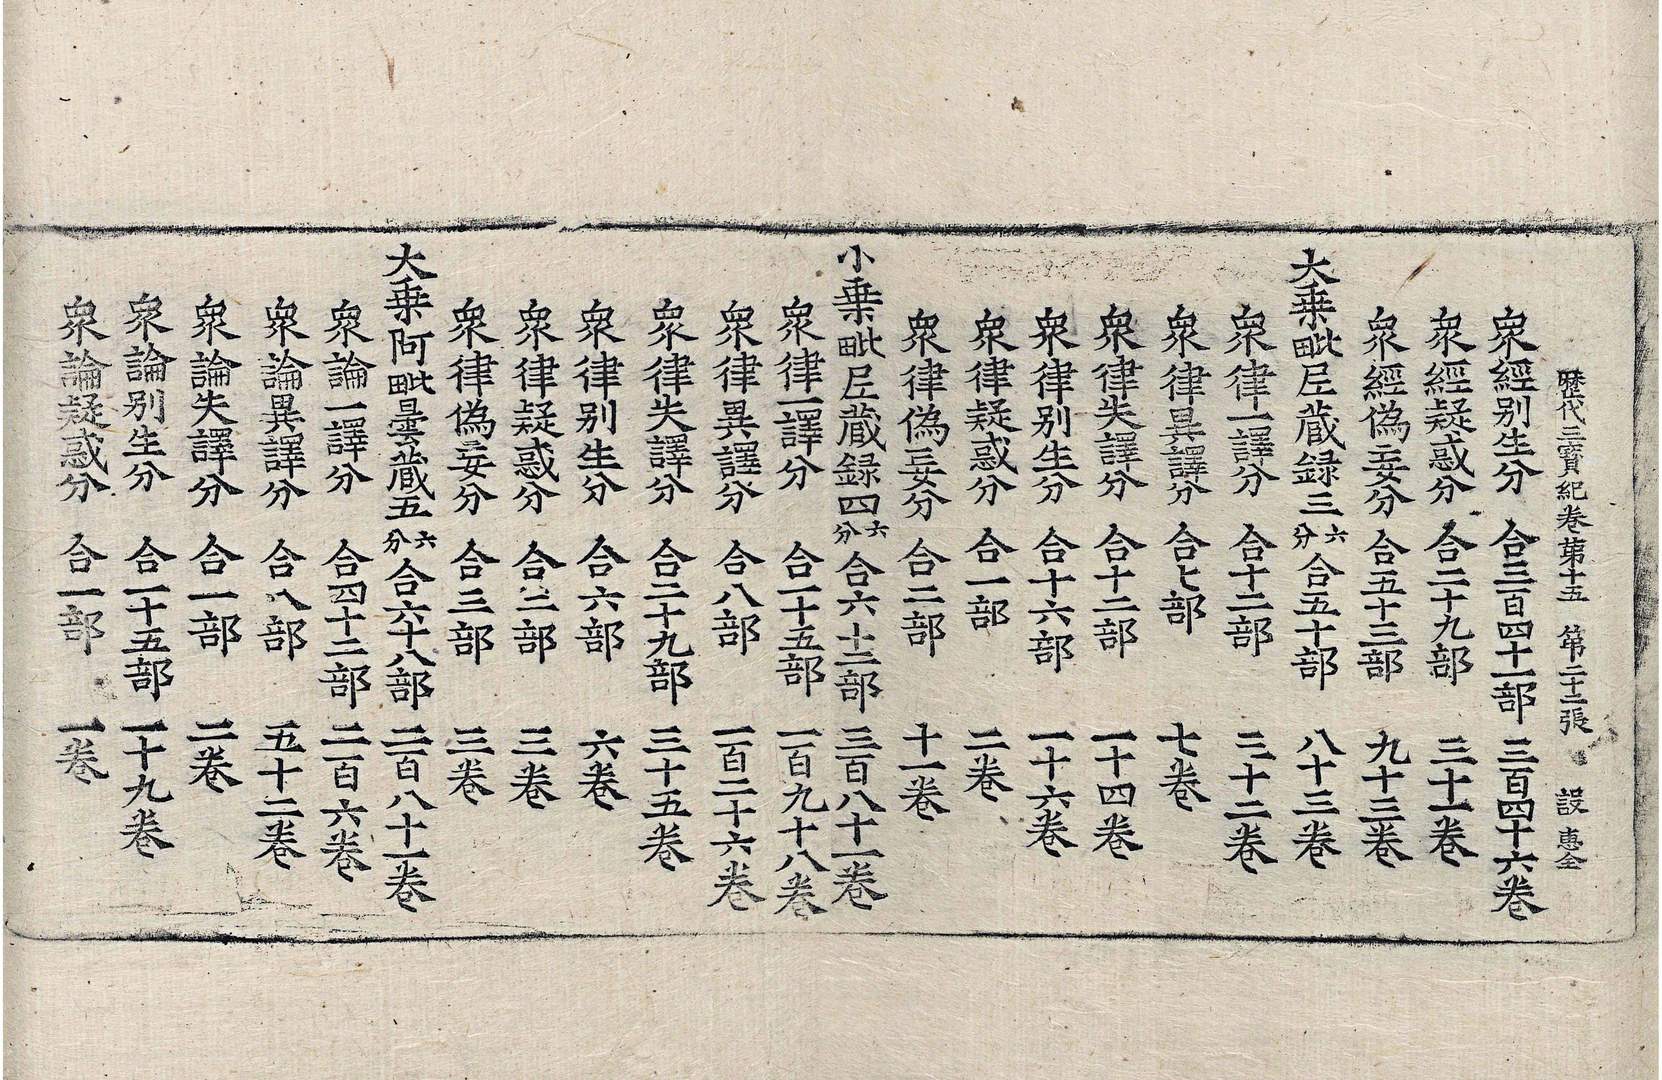 歷代三寶紀卷第十五 第二十二張 設 惠全
衆經別生分 合三百四十一部 三百四十六卷
衆經疑惑分 合二十九部 三十一卷
衆經偽妄分 合五十三部 九十三卷
大乗毗尼藏録三六分 合五十部 八十三卷
衆律一譯分 合十二部 三十二卷
衆律異譯分 合七部 七卷
衆律失譯分 合十二部 一十四卷
衆律別生分 合十六部 一十六卷
衆律疑惑分 合一部 二卷
衆律偽妄分 合二部 十一卷
小乗毗尼藏録四六分 合六十二部 三百八十一卷
衆律一譯分 合一十五部 一百九十八卷
衆律異譯分 合八部 一百二十六卷
衆律失譯分 合二十九部 三十五卷
衆律別生分 合六部 六卷
衆律疑惑分 合二部 三卷
衆律偽妄分 合三部 三卷
大乗阿毗曇藏五六分 合六十八部 二百八十一卷
衆論一譯分 合四十二部 二百六卷
衆論異譯分 合八部 五十二卷
衆論失譯分 合一部 二卷
衆論別生分 合一十五部 一十九卷
衆論疑惑分 合一部 一卷